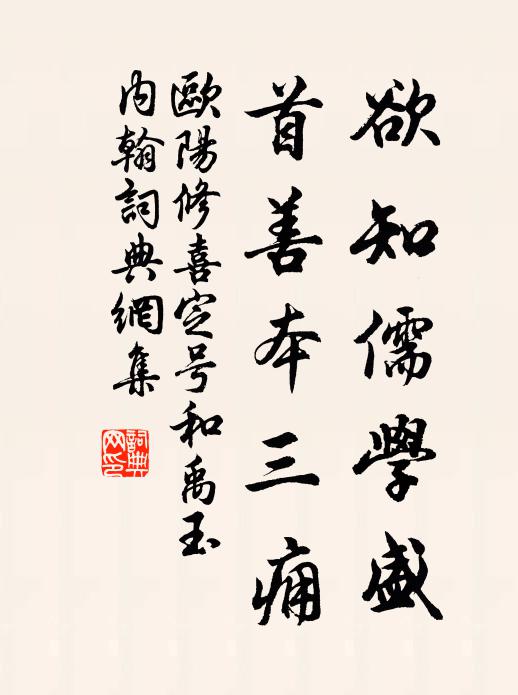 欲知儒學盛
首善本三痈
歐陽修喜定号和禹玉
内翰詞典網集
詞典
网印